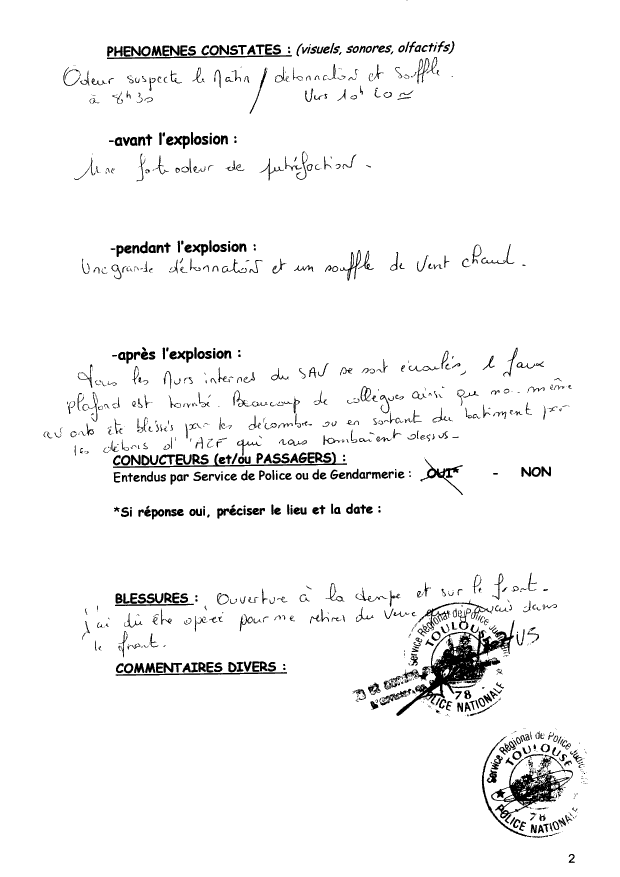 PHENOMENES CONSTATES : (visuels, sonores, olfactifs)
Odeur suspecte le Matin / détonnation et souffle.
à 8h30 Vers 10h20
-avant l'explosion :
Une forte odeur de putréfaction.
-pendant l'explosion :
Une grande détonnation et un souffle de vent chaud.
-après l'explosion :
Tous les Murs internes du SAV se sont écroulés, le faux
plafond est tombé. Beaucoup de collègues ainsi que moi même
avons été blessés par les décombres ou en sortant du batiment par
les débris d'AZF qui nous tombaient dessus.
CONDUCTEURS (et/ou PASSAGERS) :
Entendus par Service de Police ou de Gendarmerie : OUI* - NON
*Si réponse oui, préciser le lieu et la date :
BLESSURES : Ouverture à la tempe et sur le front.
j'ai dû être opéré pour me retirer du Verre que j'avais dans
le front.
COMMENTAIRES DIVERS :
Service Régional de Police Judiciaire
TOULOUSE
78
POLICE NATIONALE
Service Régional de Police Judiciaire
TOULOUSE
78
POLICE NATIONALE
2